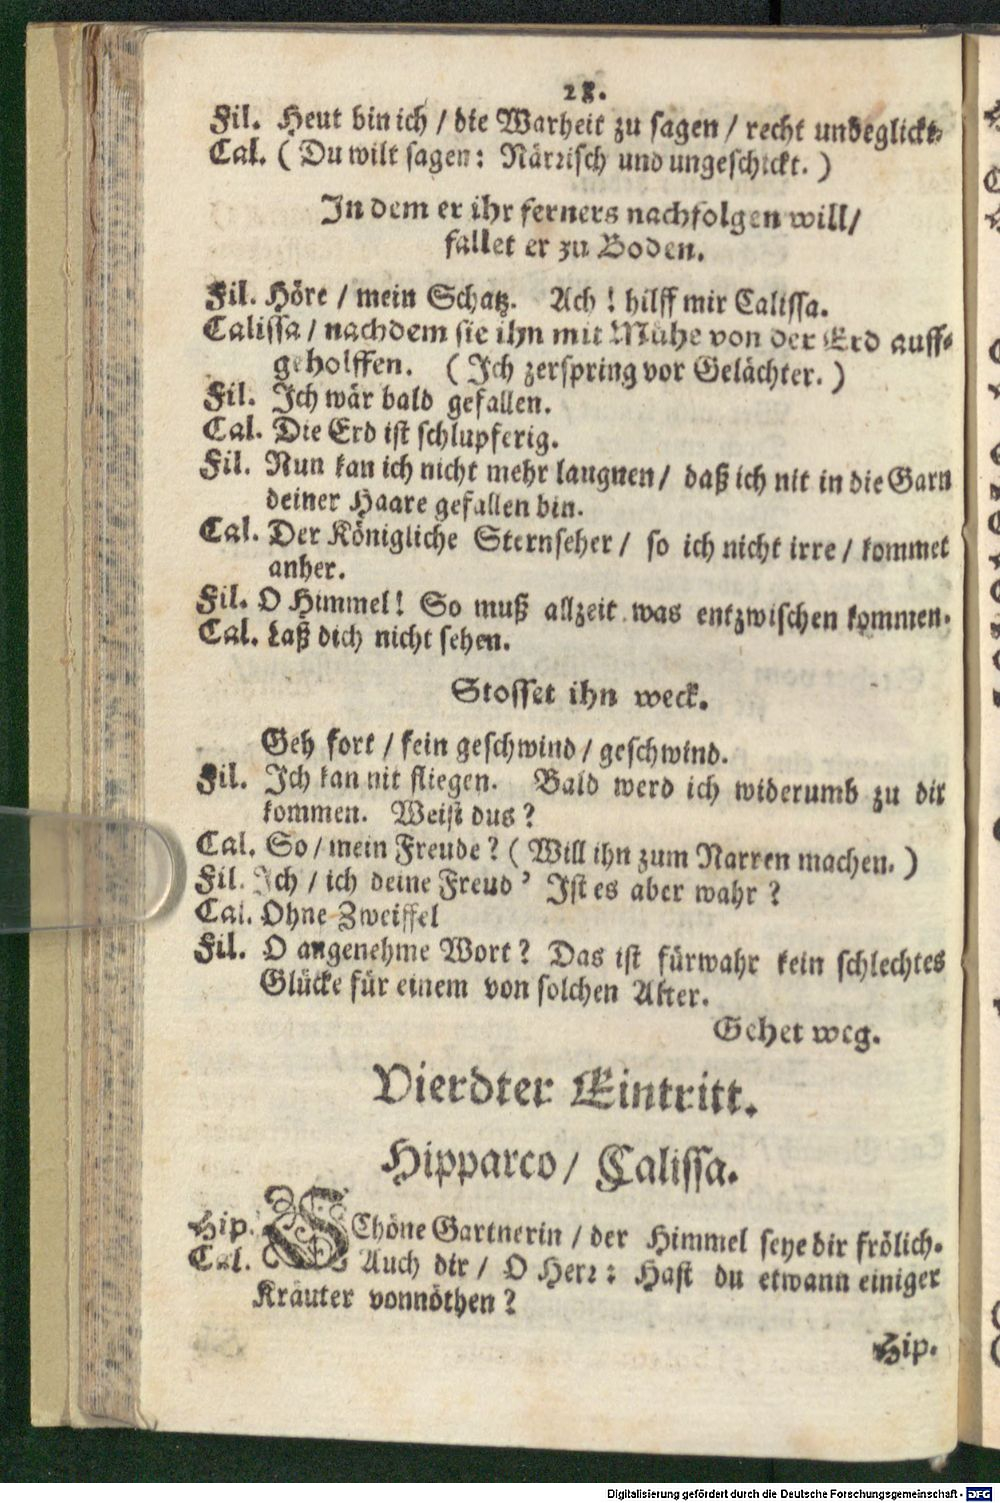 28.
Fil. Heut bin ich / die Warheit zu sagen / recht unbeglickt.
Cal. ( Du wilt sagen: Närrisch und ungeschickt. )
In dem er ihr ferners nachfolgen will/
fallet er zu Boden.
Fil. Höre / mein Schatz. Ach ! hilff mir Calissa.
Calissa / nachdem sie ihn mit Mühe von der Erd auff-
geholffen. ( Ich zerspring vor Gelächter. )
Fil. Ich wär bald gefallen.
Cal. Die Erd ist schlupferig.
Fil. Nun kan ich nicht mehr laugnen / daß ich nit in die Garn
deiner Haare gefallen bin.
Cal. Der Königliche Sternseher / so ich nicht irre / kommet
anher.
Fil. O Himmel! So muß allzeit was entzwischen kommen.
Cal. Laß dich nicht sehen.
Stosset ihn weck.
Geh fort / fein geschwind / geschwind.
Fil. Ich kan nit fliegen. Bald werd ich widerumb zu dir
kommen. Weist dus ?
Cal. So / mein Freude ? ( Will ihn zum Narren machen. )
Fil. Ich / ich deine Freud ? Ist es aber wahr ?
Cal. Ohne Zweiffel
Fil. O angenehme Wort ? Das ist fürwahr kein schlechtes
Glücke für einem von solchen Alter.
Gehet weg.
Vierdter Eintritt.
Hipparco / Calissa.
Hip. SChöne Gartnerin / der Himmel seye dir frölich.
Cal. Auch dir / O Herr : Hast du etwann einiger
Kräuter vonnöthen ?
Hip.
Digitalisierung gefördert durch die Deutsche Forschungsgemeinschaft - DFG